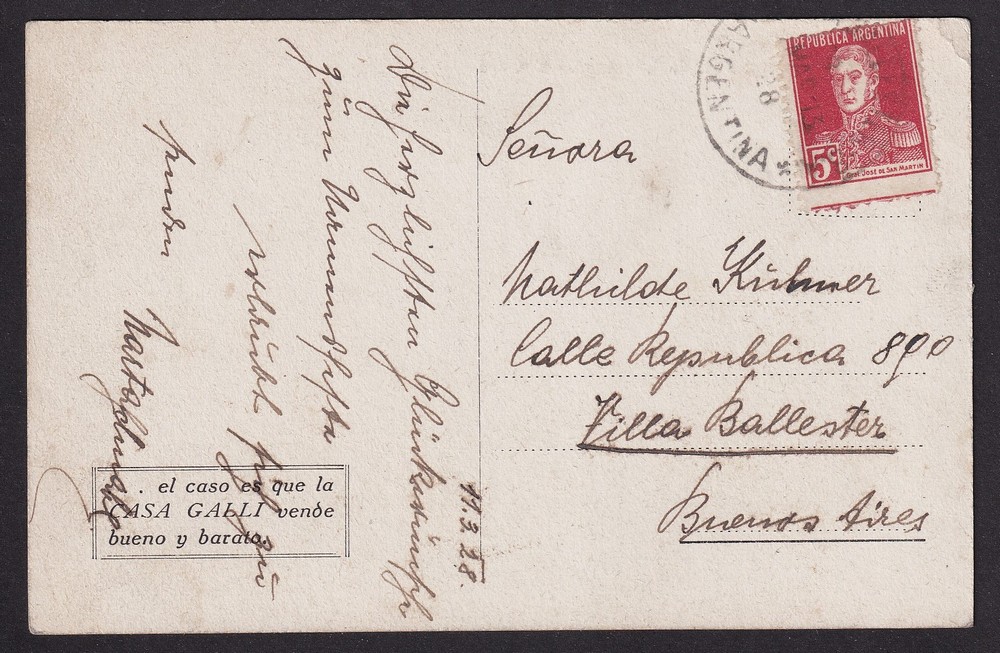 Die herzlichsten Glückwünsche
zum Namensfeste
erlaubt sich zu
senden
11.3.28.
... el caso es que la
CASA GALLI vende
bueno y barato.
REPUBLICA ARGENTINA
5c
Gral. José de San Martin
ARGENTINA *
28
Señora
Mathilde Kühner
Calle Republica 890
Villa Ballester
Buenos Aires